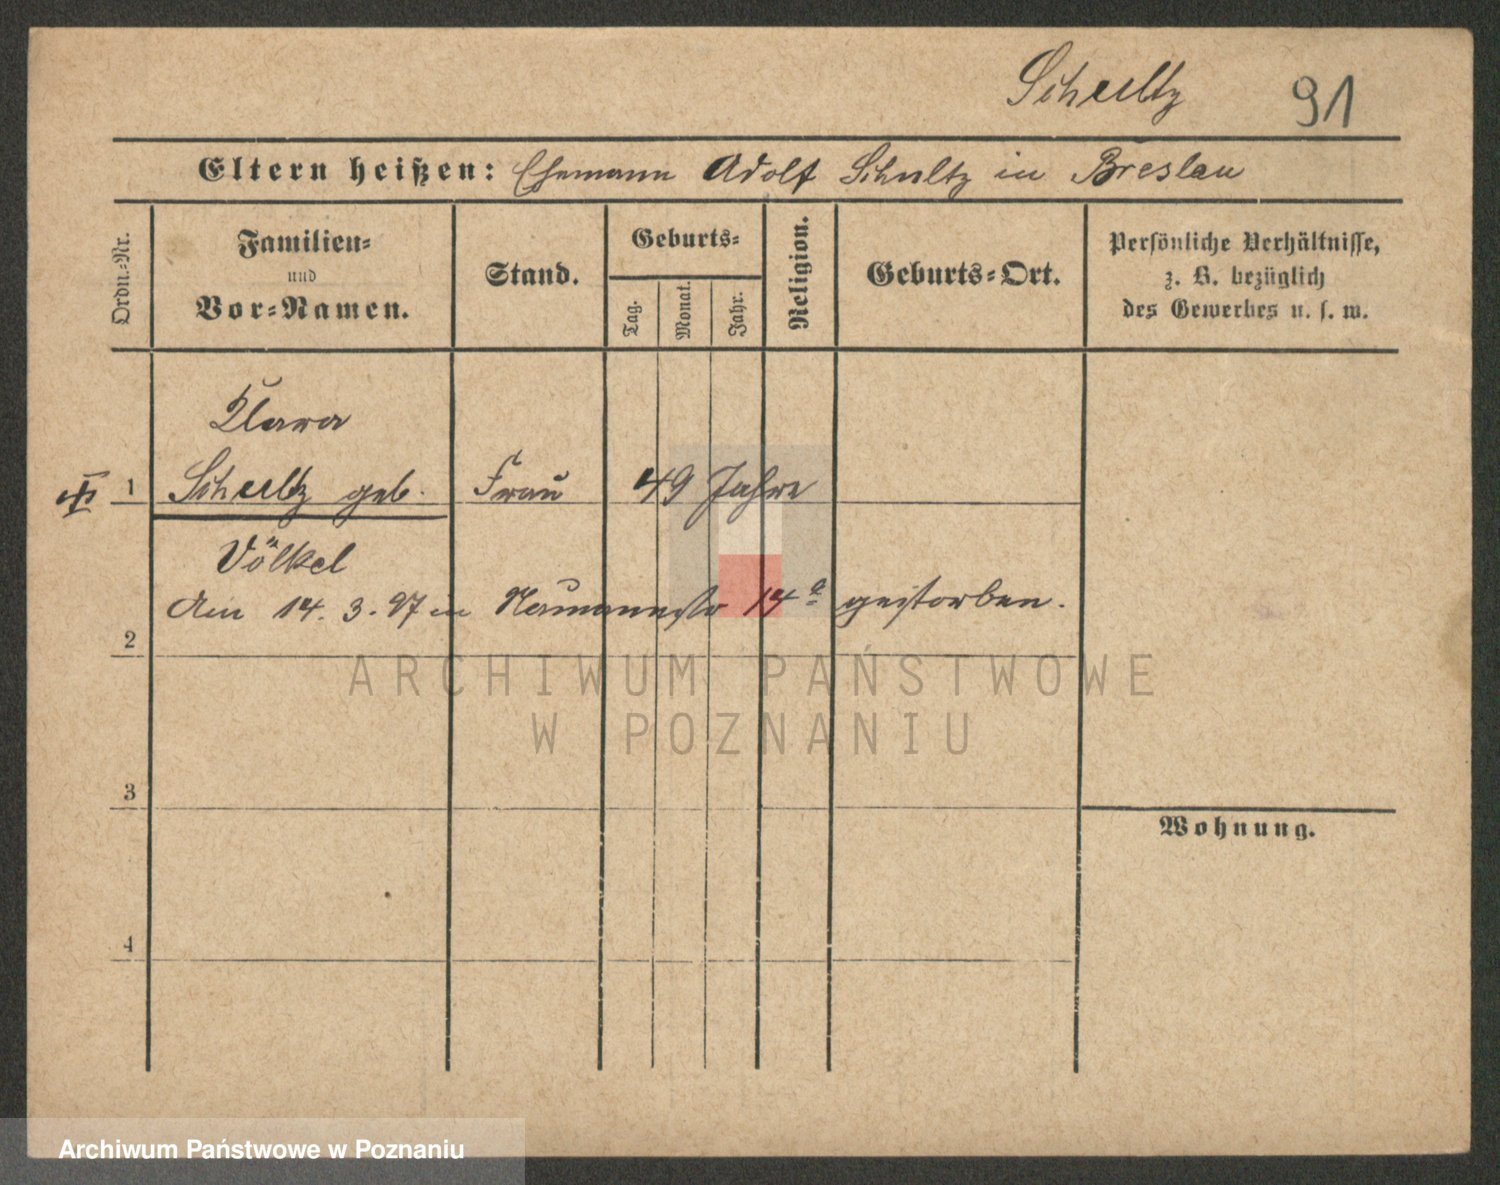 Schultz 91
Eltern heißen: Ehemann Adolf Schultz in Breslau
Ordn.-Nr.
Familien-
und
Vor-Namen.
Stand.
Geburts-
Tag.
Monat.
Jahr.
Religion.
Geburts-Ort.
Persönliche Verhältnisse,
z. B. bezüglich
des Gewerbes u. s. w.
Klara
1 Schultz geb. Frau 49 Jahre
Völkel
Am 14. 3. 97 in Naumannstr 14a gestorben.
2
ARCHIWUM PAŃSTWOWE
W POZNANIU
3
Wohnung.
4
Archiwum Państwowe w Poznaniu